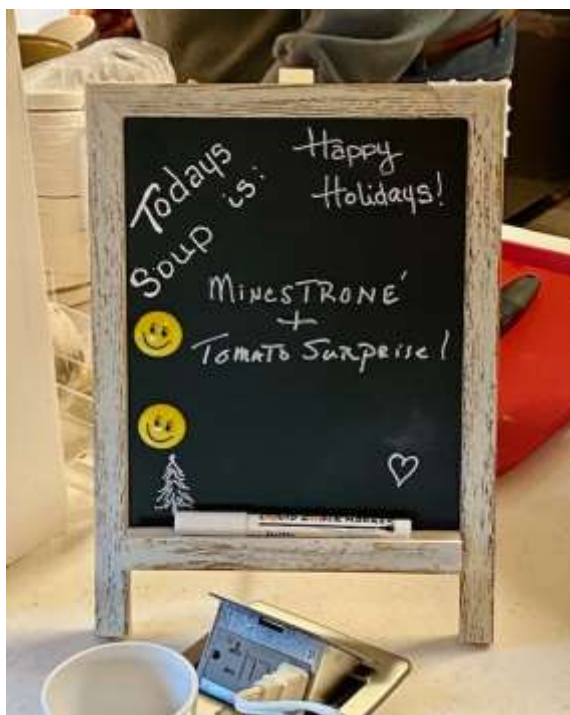 Todays
Soup is:
Happy
Holidays!
MINESTRONE'
+
TOMATO SURPRISE!